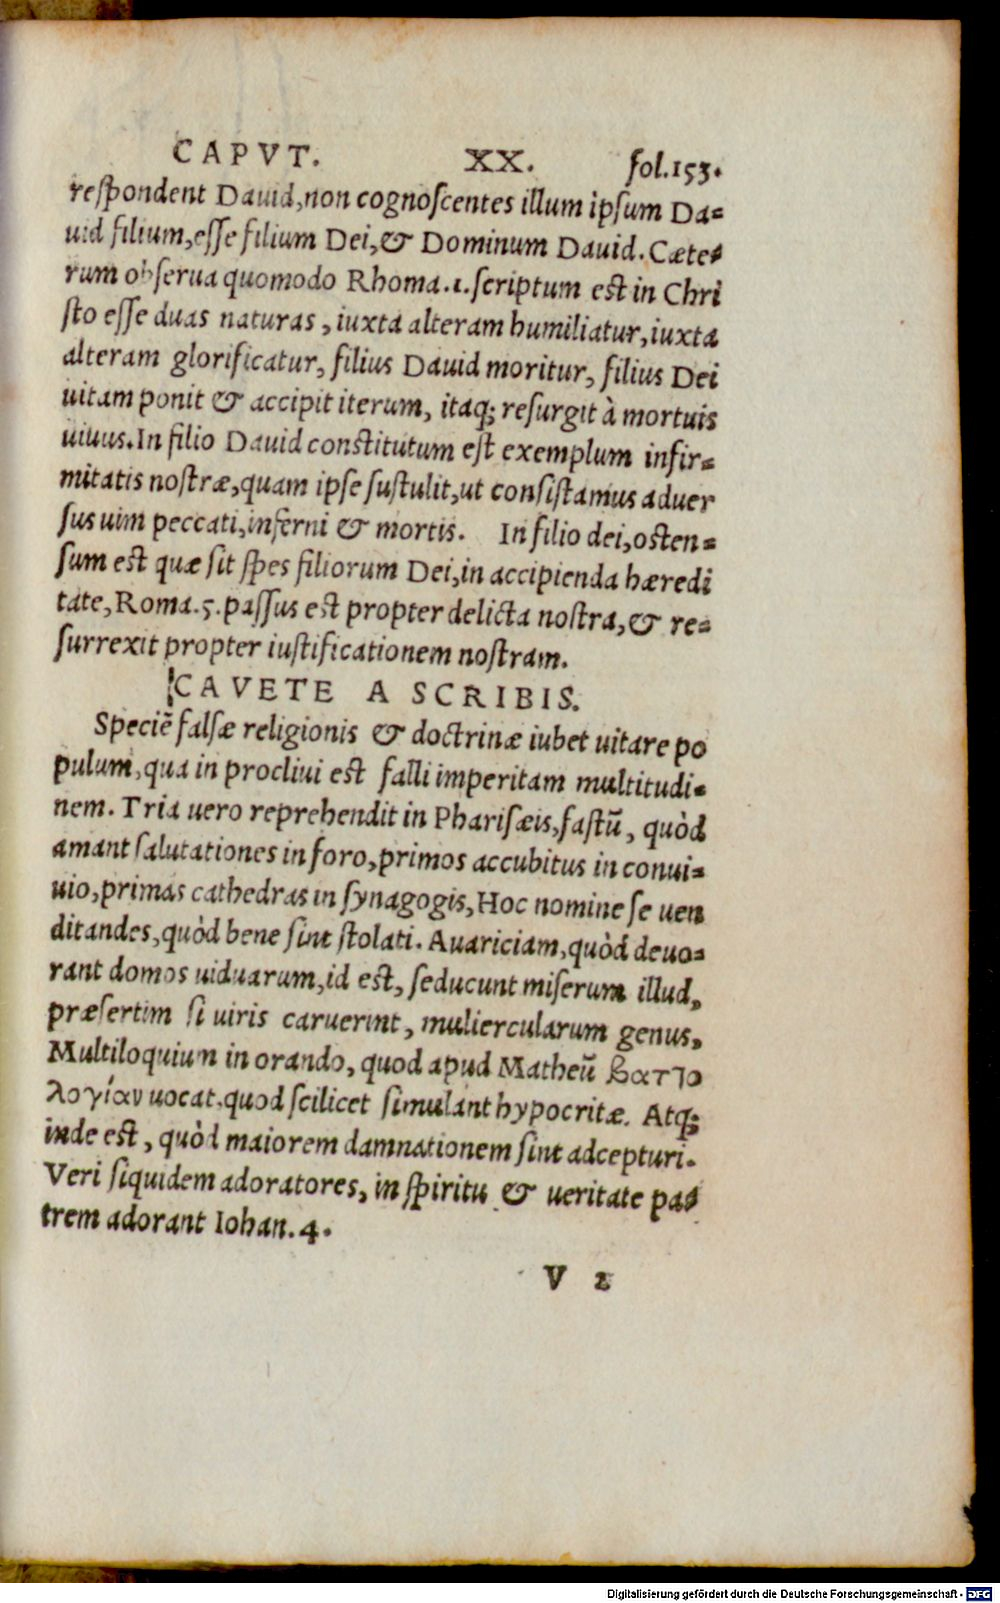 CAPVT. XX. fol.153.
respondent Dauid, non cognoscentes illum ipsum Da=
uid filium, esse filium Dei, & Dominum David. Cæte=
rum obserua quomodo Rhoma.1. scriptum est in Chri
sto esse duas naturas, iuxta alteram humiliatur, iuxta
alteram glorificatur, filius Dauid moritur, filius Dei
uitam ponit & accipit iterum, itaq; resurgit à mortuis
uiuus. In filio Dauid constitutum est exemplum infir=
mitatis nostræ, quam ipse sustulit, ut consistamus aduer
sus uim peccati, inferni & mortis. In filio dei, osten=
sum est quæ sit spes filiorum Dei, in accipienda hæredi
tate, Roma.5. passus est propter delicta nostra, & re=
surrexit propter iustificationem nostram.
CAVETE A SCRIBIS.
Speciē falsæ religionis & doctrinæ iubet uitare po
pulum, qua in procliui est falli imperitam multitudi=
nem. Tria uero reprehendit in Pharisæis, fastū, quòd
amant salutationes in foro, primos accubitus in conui=
uio, primas cathedras in synagogis, Hoc nomine se uen
ditandes, quòd bene sint stolati. Auariciam, quòd deuo=
rant domos uiduarum, id est, seducunt miserum illud,
præsertim si uiris caruerint, muliercularum genus,
Multiloquium in orando, quod apud Matheū βαττο
λογίαν uocat, quod scilicet simulant hypocritæ. Atq;
inde est, quòd maiorem damnationem sint adcepturi.
Veri siquidem adoratores, in spiritu & ueritate pa=
trem adorant Iohan.4.
V 2
Digitalisierung gefördert durch die Deutsche Forschungsgemeinschaft - DFG